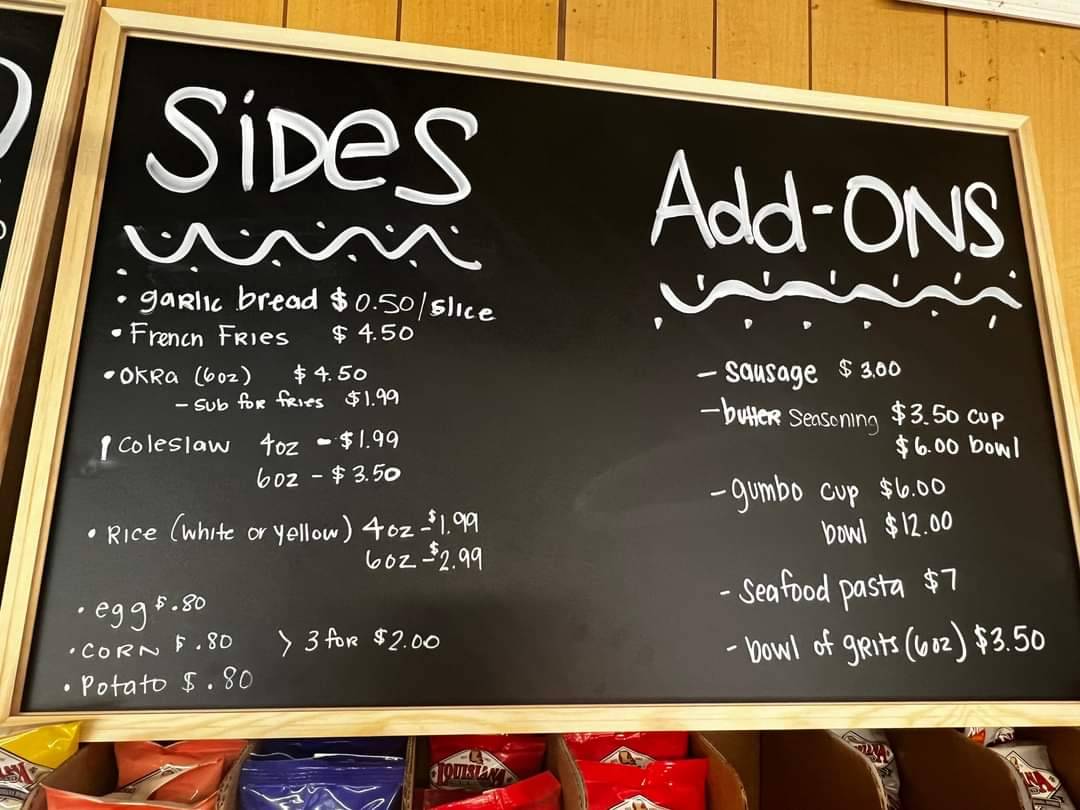 Sides
• garlic bread $0.50/slice
• French Fries $4.50
• Okra (6oz) $4.50
- sub for fries $1.99
Coleslaw 4oz - $1.99
6oz - $3.50
• Rice (white or yellow) 4oz - $1.99
6oz - $2.99
• egg $.80
• CORN $.80 > 3 for $2.00
• Potato $.80
Add-ONS
- sausage $3.00
- butter seasoning $3.50 cup
$6.00 bowl
- gumbo cup $6.00
bowl $12.00
- seafood pasta $7
- bowl of grits (6oz) $3.50
LOUISIANA